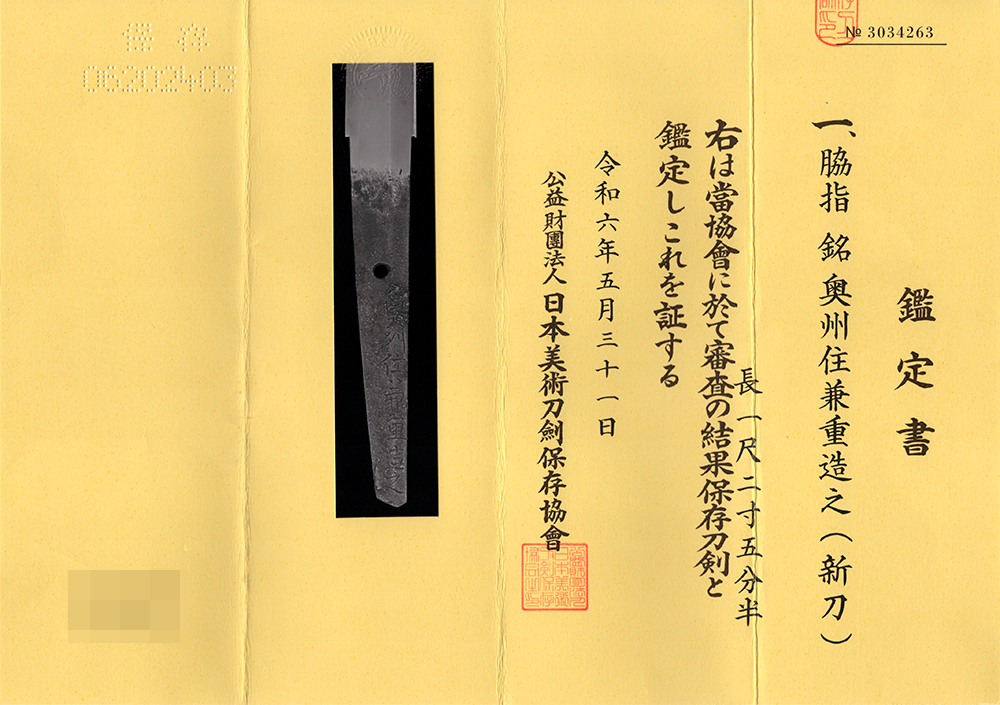 № 3034263
鑑定書
一、脇指 銘 奥州住兼重造之(新刀)
長一尺二寸五分半
右は當協會に於て審査の結果保存刀剣と
鑑定しこれを証する
令和六年五月三十一日
公益財團法人 日本美術刀劍保存協會
保存
06202403
奥州住兼重造之